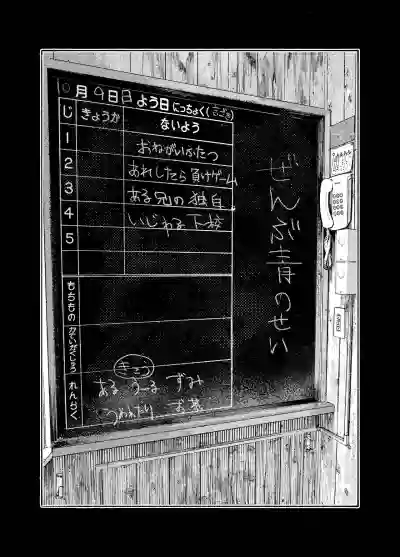 10月9日日よう日 にっちょく(
じ きょうか ないよう
1 おねがいふたつ
2 あれしたら負けゲーム
3 ある兄の独白
4 いじわる下校
5
もちもの
かていがくしゅう
れんらく
ある ずみ
お茶
ぜんぶ青のせい